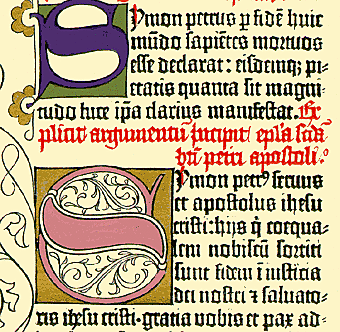 Symon petrus ꝑ fidē huic
mūdo sapiētes mortuos
esse declarat : eisdemqꝫ pi-
etatis quanta sit magni-
tudo luce ip̄a clarius manifestat. Ex-
plicit argumentū Incipit epl̄a scd̄a
bt̄i petri apostoli.
Symon petrꝰ seruus
et apostolus ihesu
cristi : hijs q̇ coequa-
lem nobiscū sortiti
sunt fidem ī iusticia
dei nostri ⁊ saluato-
ris ihesu cristi · gratia vobis et pax ad-